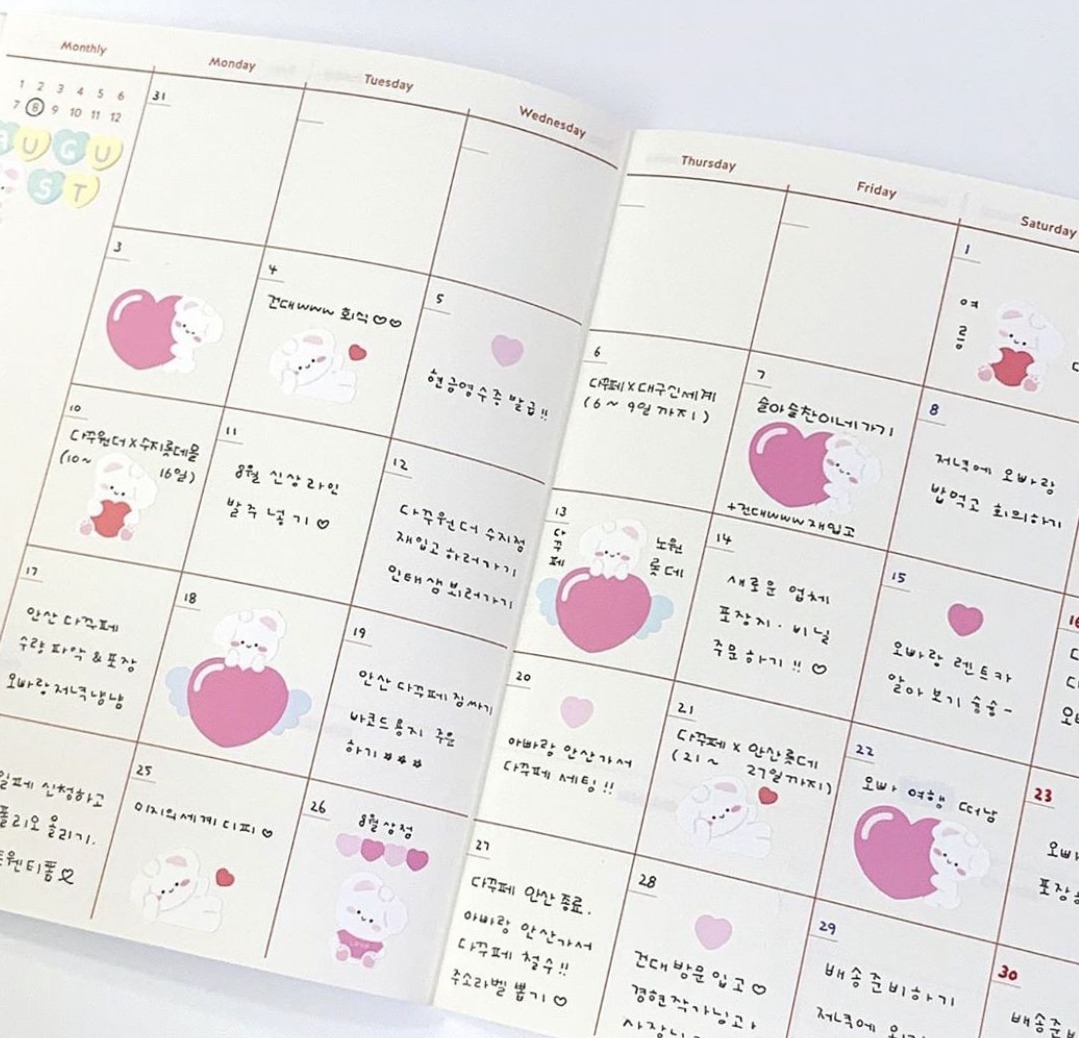 Monthly
Monday
Tuesday
Wednesday
Thursday
Friday
Saturday
1 2 3 4 5 6
7 8 9 10 11 12
UGU
ST
31
1
여
름
3
4
건대www 회식♡♡
5
현금영수증 발급!!
6
다꾸페 x 대구신세계
(6~9일까지)
7
슬아슬찬이네가기
+건대www재입고
8
저녁에 오빠랑
밥먹고 회의하기
10
다꾸원더x수지롯데몰
(10~
16일)
11
8월 신상라인
발주 넣기♡
12
다꾸원더 수지점
재입고하러가기
인태샘 뵈러가기
13
다
꾸
페
노원
롯데
14
새로운 업체
포장지·비닐
주문하기!!♡
15
오빠랑 렌트카
알아보기 슝슝-
16
17
안산 다꾸페
수량 파악 & 포장
오빠랑저녁냠냠
18
19
안산 다꾸페 짐싸기
바코드용지 주문
하기
20
아빠랑 안산가서
다꾸페 세팅!!
21
다꾸페 x 안산롯데
(21~ 27일까지)
22
오빠 여행 떠남
23
포장
일페 신청하고
올리기.
25
이지의세계 디피♡
26
8월상점
27
다꾸페 안산 종료.
아빠랑 안산가서
다꾸페 철수!!
주소라벨 뽑기♡
28
건대 방문 입고♡
경현작가님과
29
배송준비하기
저녁에
30
배송준